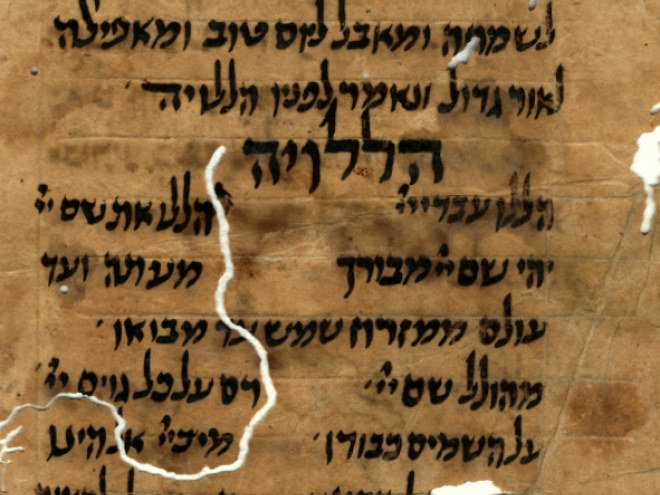 לשמחה ומאבל ליום טוב ומאפילה
לאור גדול ונאמר לפניו הללויה
הללויה
הללו עבדי ייי הללו את שם ייי
יהי שם ייי מבורך מעתה ועד
עולם ממזרח שמש עד מבואו
מהולל שם ייי רם על כל גוים ייי
על השמים כבודו מי כייי אלהינו